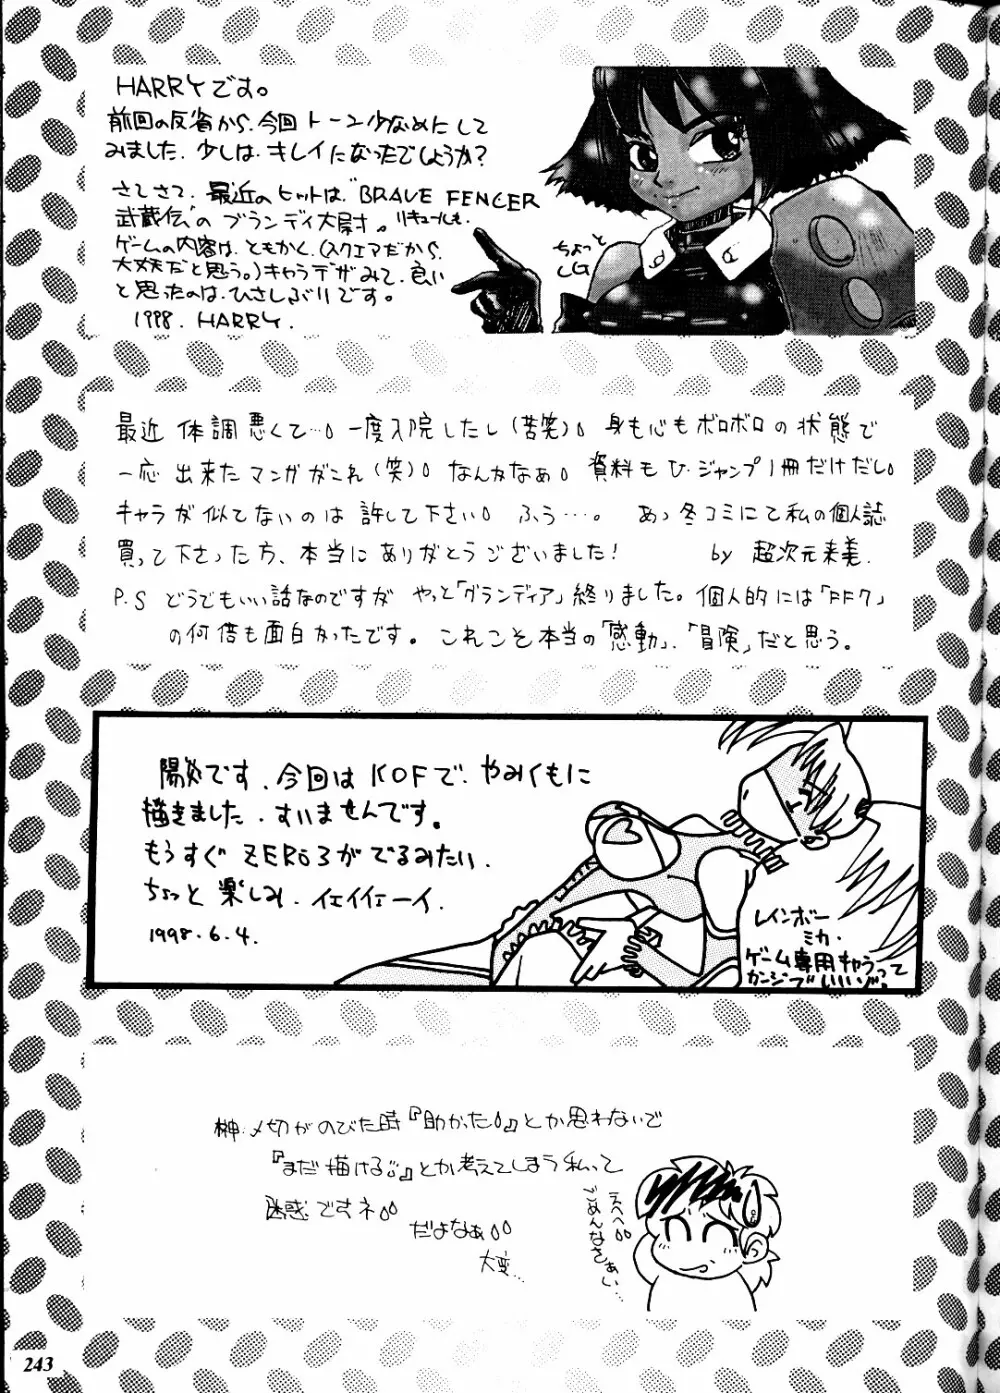 HARRYです。
前回の反省から、今回トーン少なめにして
みました、少しは、キレイになったでしょうか?
さてさて、最近のヒットは、"BRAVE FENCER
武蔵伝"の ブランディ大尉。リキュールも。
ゲームの内容は、ともかく、(スクエアだから、
大丈夫だと思う。)キャラデザみて、良い
と思ったのは、ひさしぶりです。
1998. HARRY.
ちょっと
CG
最近 体調悪くて…。一度入院したし(苦笑)。身も心もボロボロの状態で
一応 出来たマンガがこれ(笑)。なんかなぁ。資料もV・ジャンプ1冊だけだし。
キャラが似てないのは許して下さい。ふう…。あっ冬コミにて私の個人誌
買って下さった方、本当にありがとうございました! by 超次元来美.
P.S どうでもいい話なのですが やっと「グランディア」終りました。個人的には「FF7」
の何倍も面白かったです。これこそ本当の「感動」、「冒険」だと思う。
陽炎です、今回はKOFで、やみくもに
描きました、すいませんです。
もうすぐ ZERO3がでるみたい、
ちょっと楽しみ、イエイイエーイ、
1998.6.4.
レインボー
ミカ・
ゲーム専用キャラって
カンジでいいゾ?
榊:〆切がのびた時『助かった。』とか思わないで
『まだ描ける。』とか考えてしまう私って
迷惑ですネ。
だよなぁ。
大変…
えへへ。
ごめんなさぁい…
243